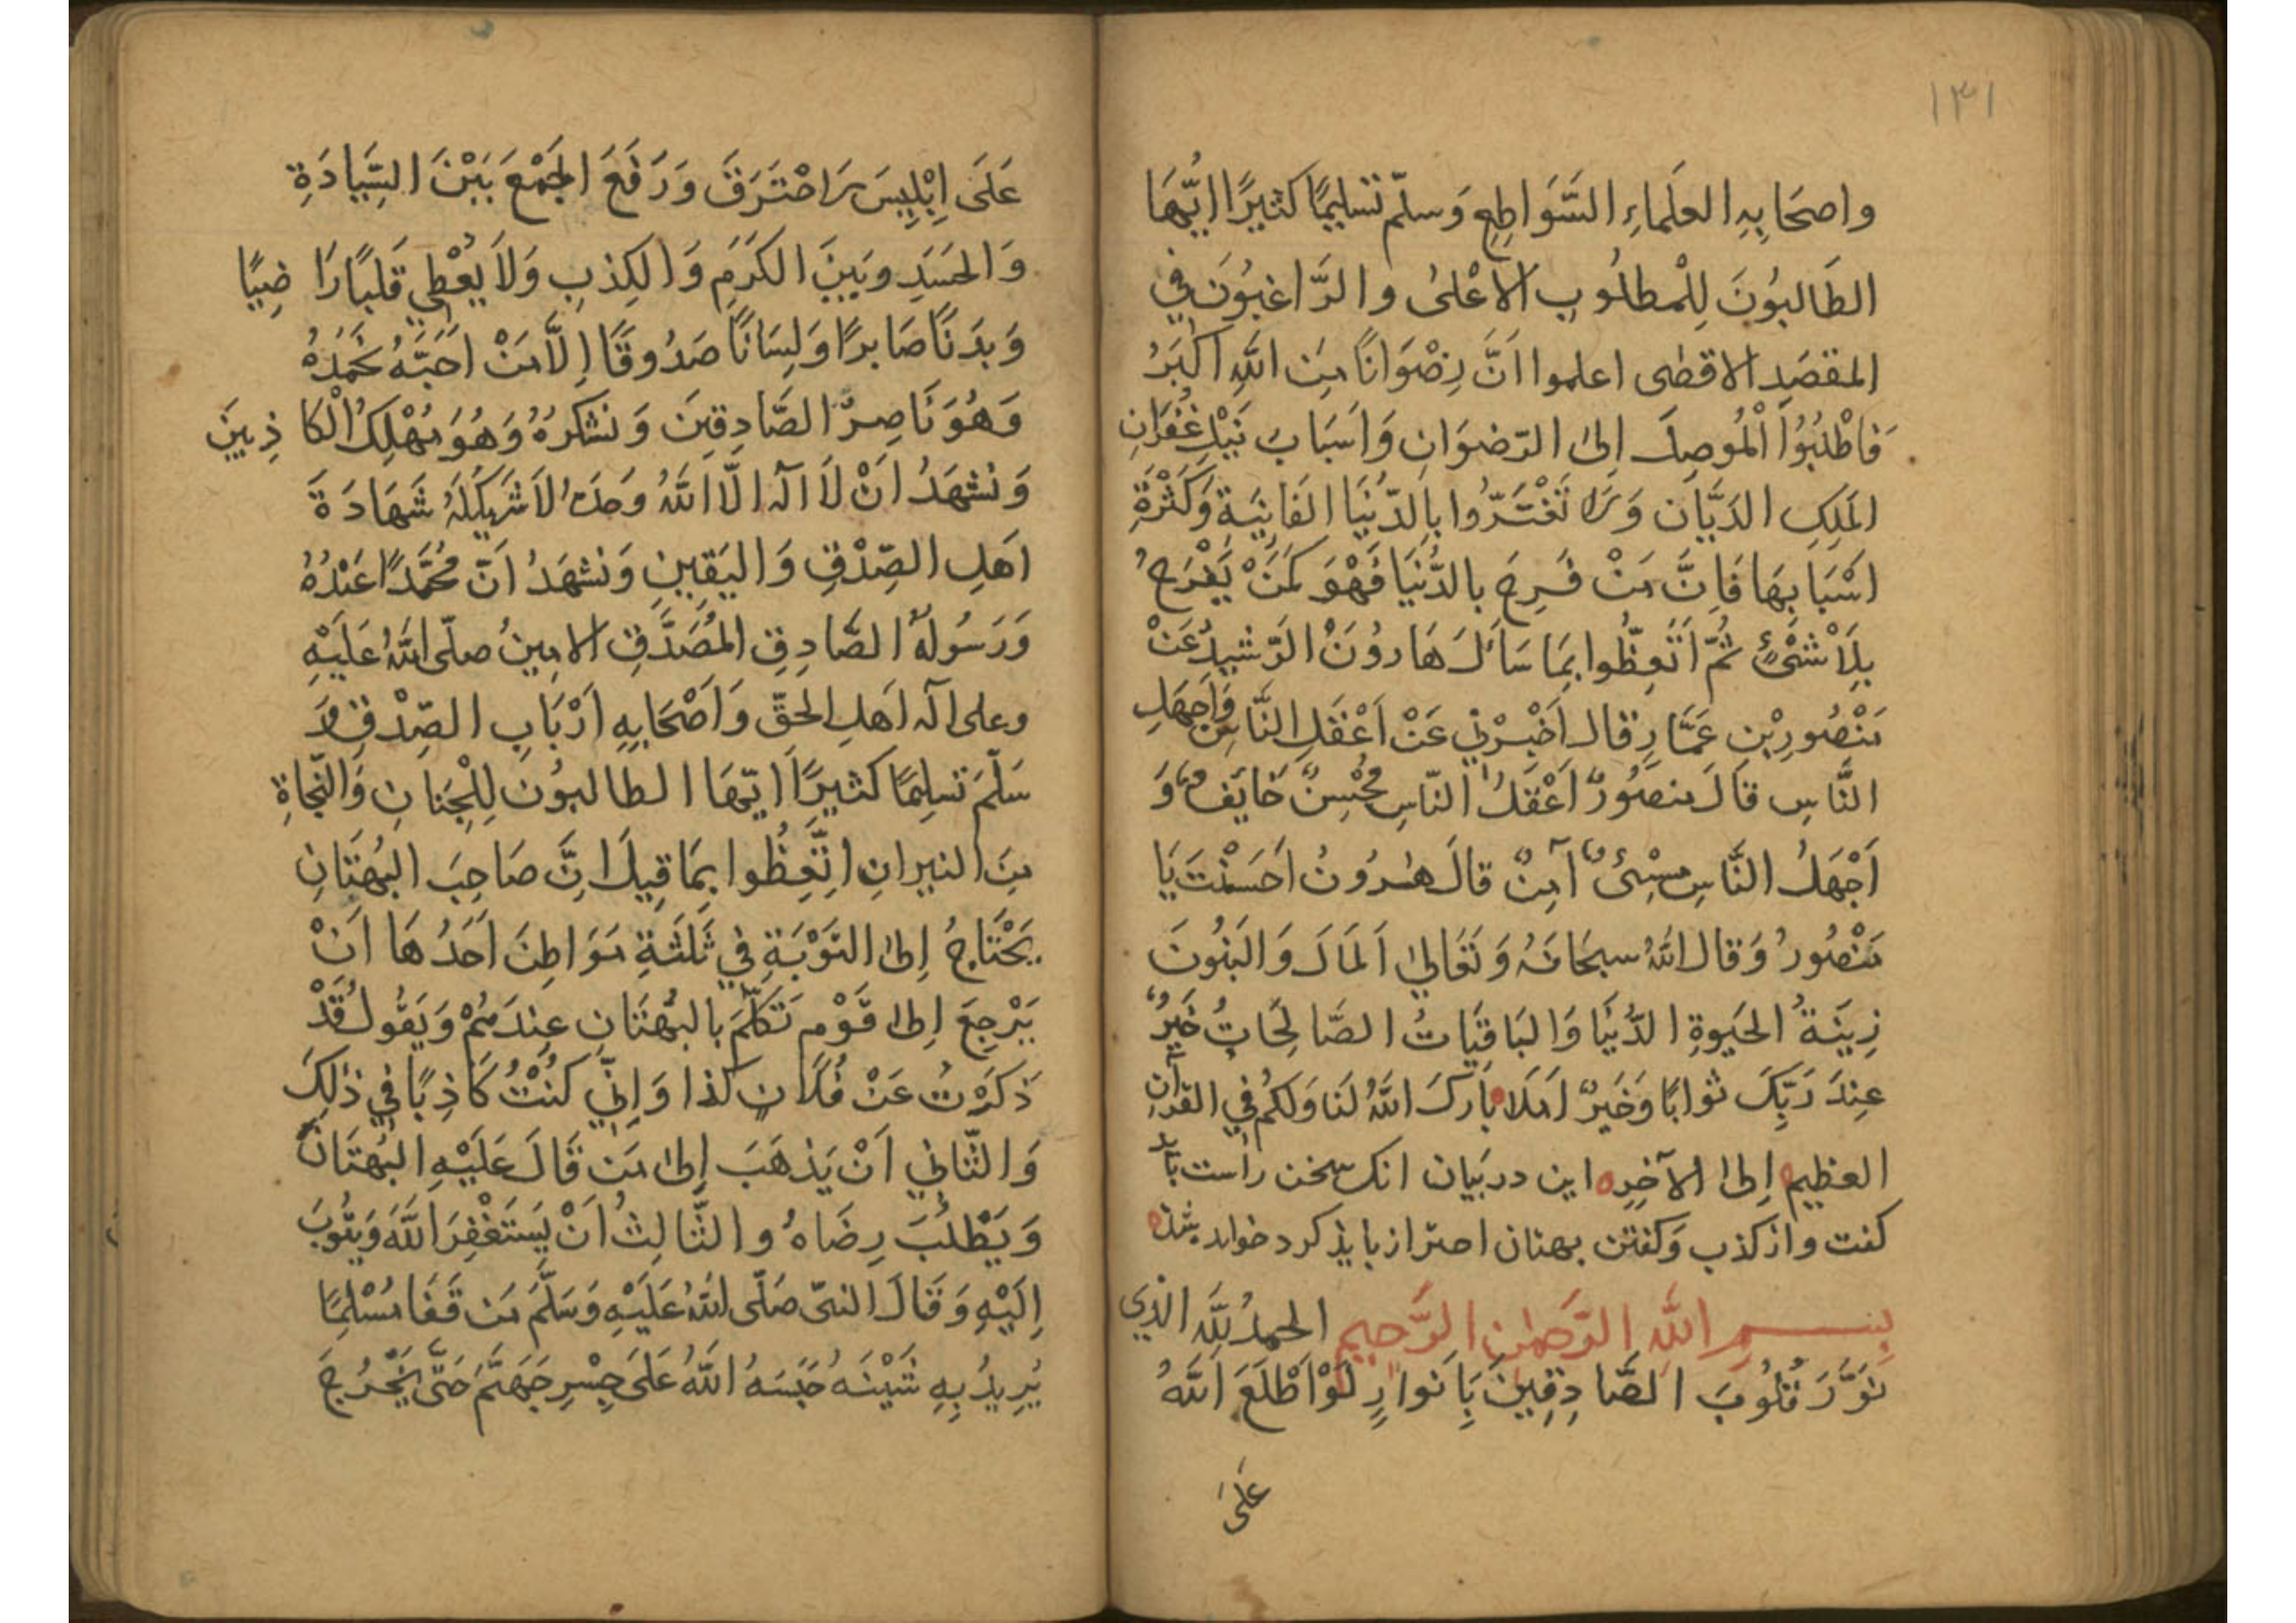 ١٣١
واصحَابِهِ العلَماءِ السَّوَاطِعِ وَسلّم تَسليمًا كثيرًا ايُّهَا
الطَالبُونَ لِلْمطلُوبِ الاَعْلىٰ والرَّاغبُونَ في
المقصَدِ الاقصٰى اعلموا اَنَّ رِضْوَانًا مِنَ اللهِ اَكْبَرُ
فَاطْلبُوُا الْمُوصِلَ اِلىٰ الرّضوَانِ وَاَسبَابَ نَيْلِ غُفْرَانِ
المَلِكِ الدَيَّانِ وَلَا تَغْتَرّوُا باِلدّنْيَا الفَانِيَةِ وَكَثْرَةِ
اَسْبَابِهَا فَاِنَّ مَنْ فَرِحَ بالدُّنيَا فَهْوَ كمَنْ يَفْرَحُ
بِلَاشْئٍ ثُمَّ اتَّعِظُوا بِمَا سَاَلَ هَارُونَ الرّشيدُ عَنْ
مَنْصُورِبْنِ عَمَّارٍ قال اَخْبِرْنِي عَنْ اَعْقَلِ النَّاسِ وَاَجهَلِ
النَّاسِ قَالَ منصُورٌ اَعْقَلُ النّاسِ مُحْسِنٌ خَايَفٌ وَ
اَجْهَلُ النَّاسِ مسِئٌ آمِنٌ قالَ هٰرُونُ اَحَسَنْتَ يَا
مَنْصُورُ وَقال اللهُ سبحَانَهُ وَتَعَالىٰ اَلمَالَ وَالبَنُونَ
زِينَةُ الحَيوةِ الدّنيَا وَالبَاقيَاتُ الصَّالِحَاتُ خَيرٌ
عِندَ رَبِّكَ ثوابًا وَخَيرٌ اَمَلَا بَارَكَ اللهُ لنَا وَلكُم في القرآنِ
العظيمِ اِلىٰ الآخِرِه اين در بَيان انك سخن راست بايد
كفت واز كذب وَكفتن بهتان احتراز بايذ كرد خوابد شده
بِسمِ اللهِ الرَّحمٰنِ الرَّحيمِ الحمدُ لِلّهِ الذي
نوَّرَ قلُوبَ الصَّادِقِينَ بِاَنوارٍ لَوْ اَطْلَعَ اللهُ
عَلىٰ
عَلَى اِبْلِيسَ لَاحْتَرَقَ وَرَفَعَ الجَمْعَ بَيْنَ السِّيَادَةِ
وَالحسَدِ وبَينَ الكَرَمِ وَالكِذبِ وَلَا يُعْطِي قَلبًا رَاضِيًا
وَبَدَنًا صَابرًا وَلِسَانًا صَدُوقًا اِلَّا مَنْ اَحَبَّهُ نَحْمَدُهُ
وَهُوَ نَاصِرُ الصَّادِقِينَ وَنشكرُهُ وَهُوَ مُهْلِكُ الْكَاذِبينَ
وَنُشهَدُ اَنْ لَا اله الّا اللهُ وَحدَهُ لَا شَرِيكَ لَهُ شَهَادَةَ
اَهلِ الصِّدْقِ وَاليَقِينِ وَنشهَدُ اَنّ مُحَمَّدًا عَبْدُهُ
وَرَسُولهُ الصَّادِقِ المُصَدَّقِ الامينُ صلّى اللهُ عَلَيْهِ
وعلى آله اَهلِ الحقّ وَاَصْحَابِهِ اَرْبَابِ الصِّدْقِ وَ
سَلّمَ تَسليمًا كثيرًا ايّهَا الطالبُون لِلْجِنانِ وَالنّجَاةِ
مِنَ النيرانِ اتَّعِظُوا بِمَا قِيلَ انَّ صَاحِبَ البُهتَانِ
يَحْتَاجُ اِلىٰ التَوْبَةِ في ثَلثَةِ مَوَاطِنَ اَحَدُهَا اَنْ
يَرْجِعَ اِلىٰ قَوْمٍ تَكَلّمَ بالبُهْتَانِ عِندَهُمْ وَيَقُولُ قَدْ
ذَكَرْتُ عَنْ فُلَانٍ كذا وَاِنّي كنْتُ كَاذِبًا في ذٰلِكَ
وَالثّاني اَنْ يَذهَبَ اِلىٰ مَن قَالَ عَلَيْهِ البُهْتَانَ
وَيَطْلُبَ رِضَاهُ والثّالِثُ اَنْ يَستَغْفِرَ اللّهَ وَيَتُوبَ
اِلَيْهِ وَقَالَ النبيّ صَلّى اللهُ عَلَيْهِ وَسَلّمَ مَن قَفَا مُسْلِمًا
يُرِيدُ بِهِ شَيْنَهُ حَبَسَهُ اللّهُ عَلَى جِسْرِ جَهَنَّمَ حَتّى يَخْرُجَ